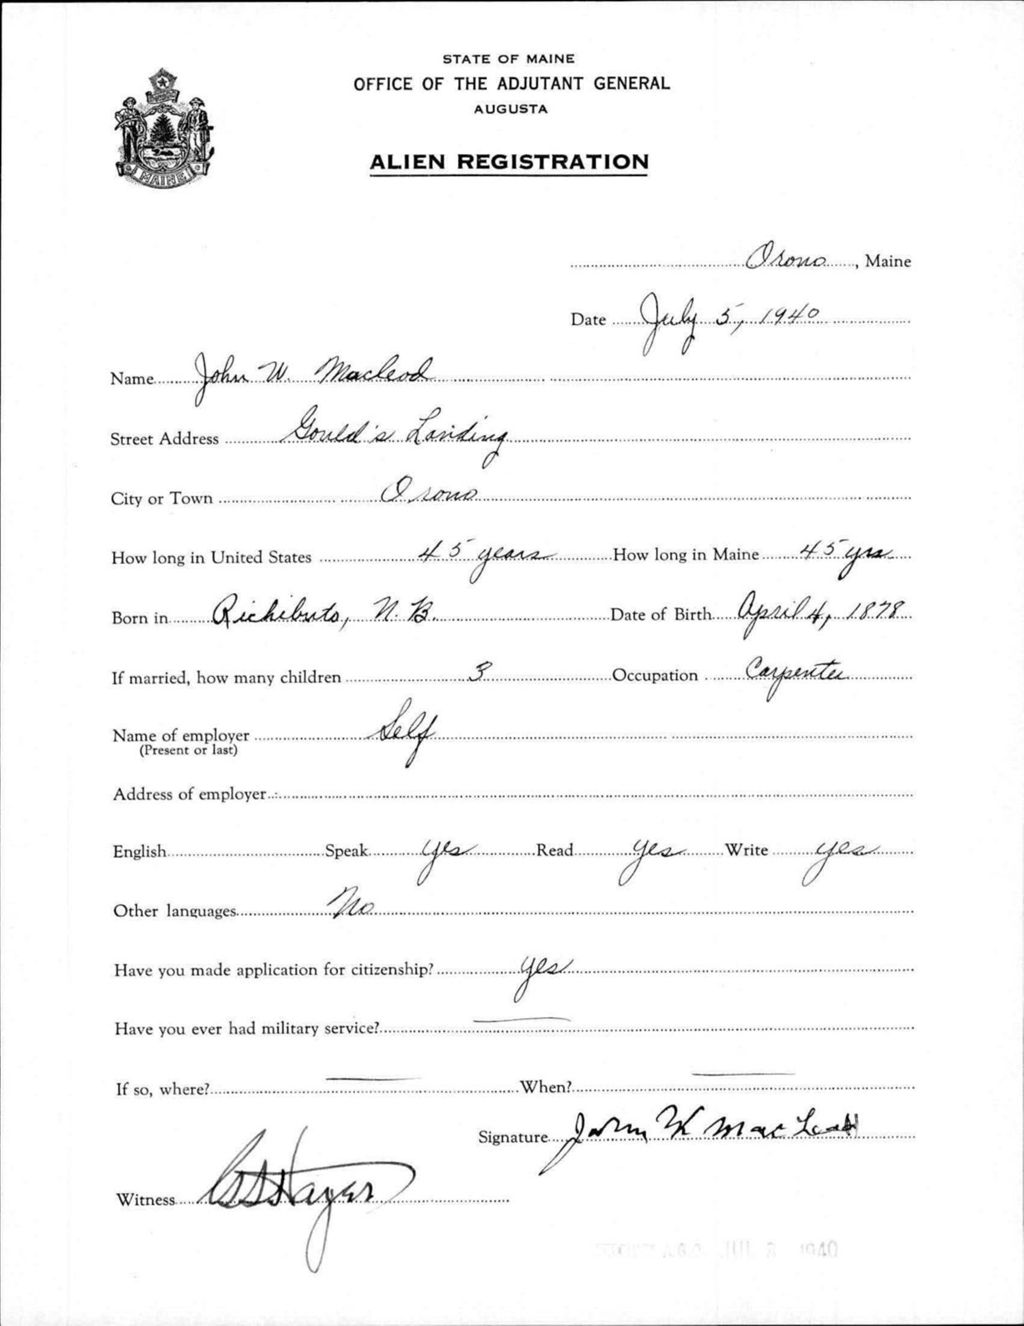 STATE OF MAINE
OFFICE OF THE ADJUTANT GENERAL
AUGUSTA
ALIEN REGISTRATION
MAINE
Orono, Maine
Date July 5, 1940
Name John W. Macleod
Street Address Gould's Landing
City or Town Orono
How long in United States 45 years How long in Maine 45 yrs
Born in Richibuto, N.B. Date of Birth April 4, 1878
If married, how many children 3 Occupation Carpenter
Name of employer Self
(Present or last)
Address of employer
English Speak yes Read yes Write yes
Other languages No
Have you made application for citizenship? yes
Have you ever had military service? —
If so, where? — When? —
Signature John W MacLeod
Witness Hayes
A.G.O. JUL 1940